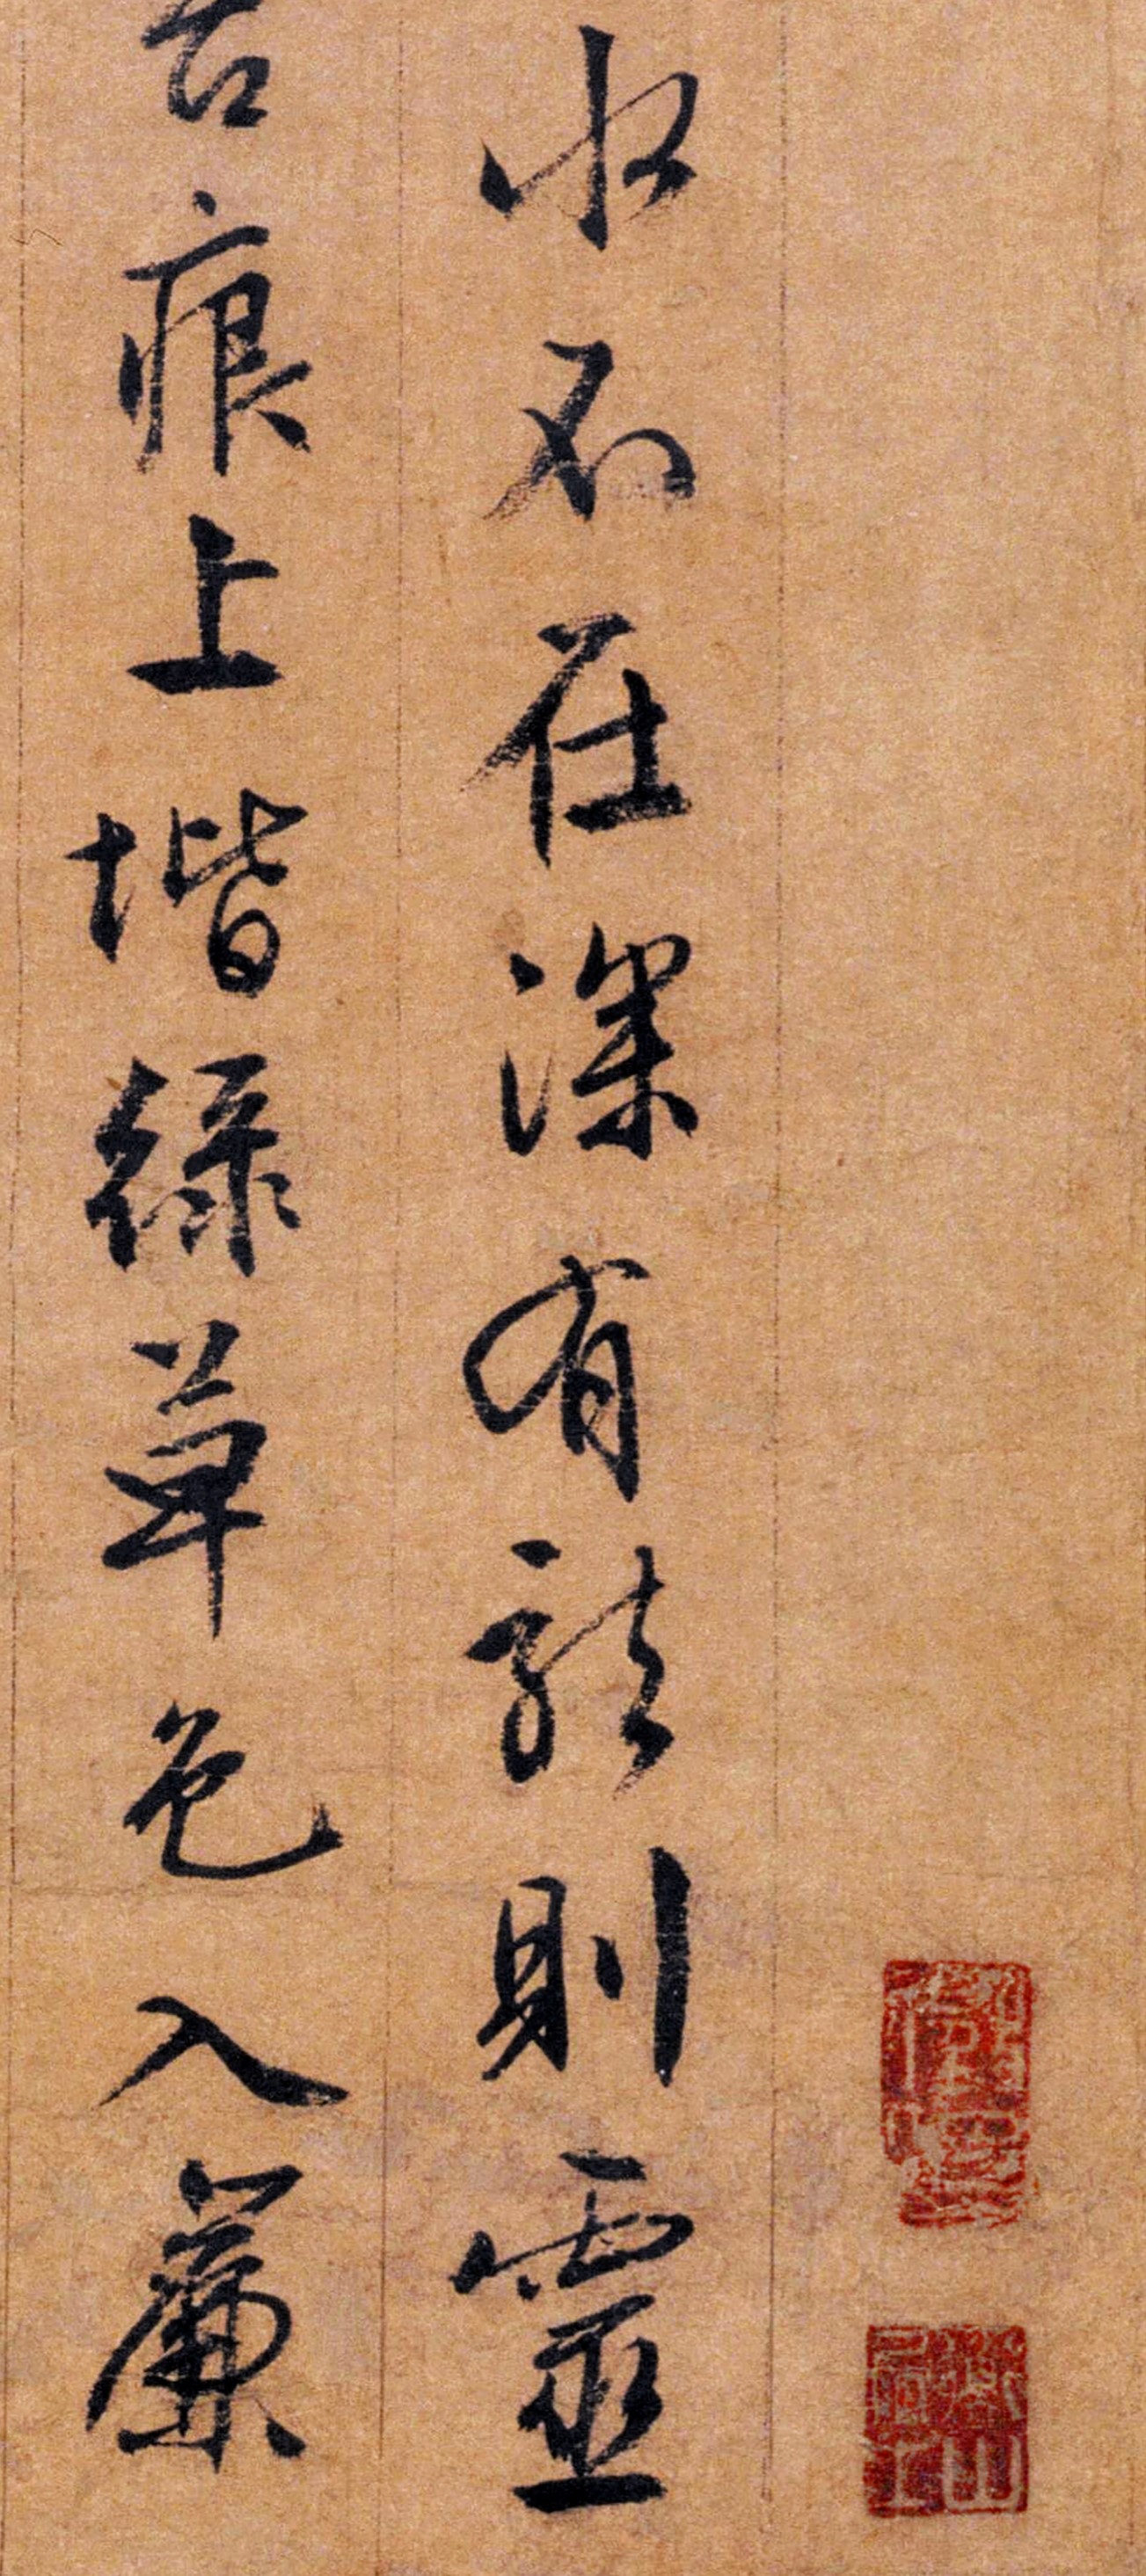 水不在深有龍則靈
痕上堦緑草色入簾